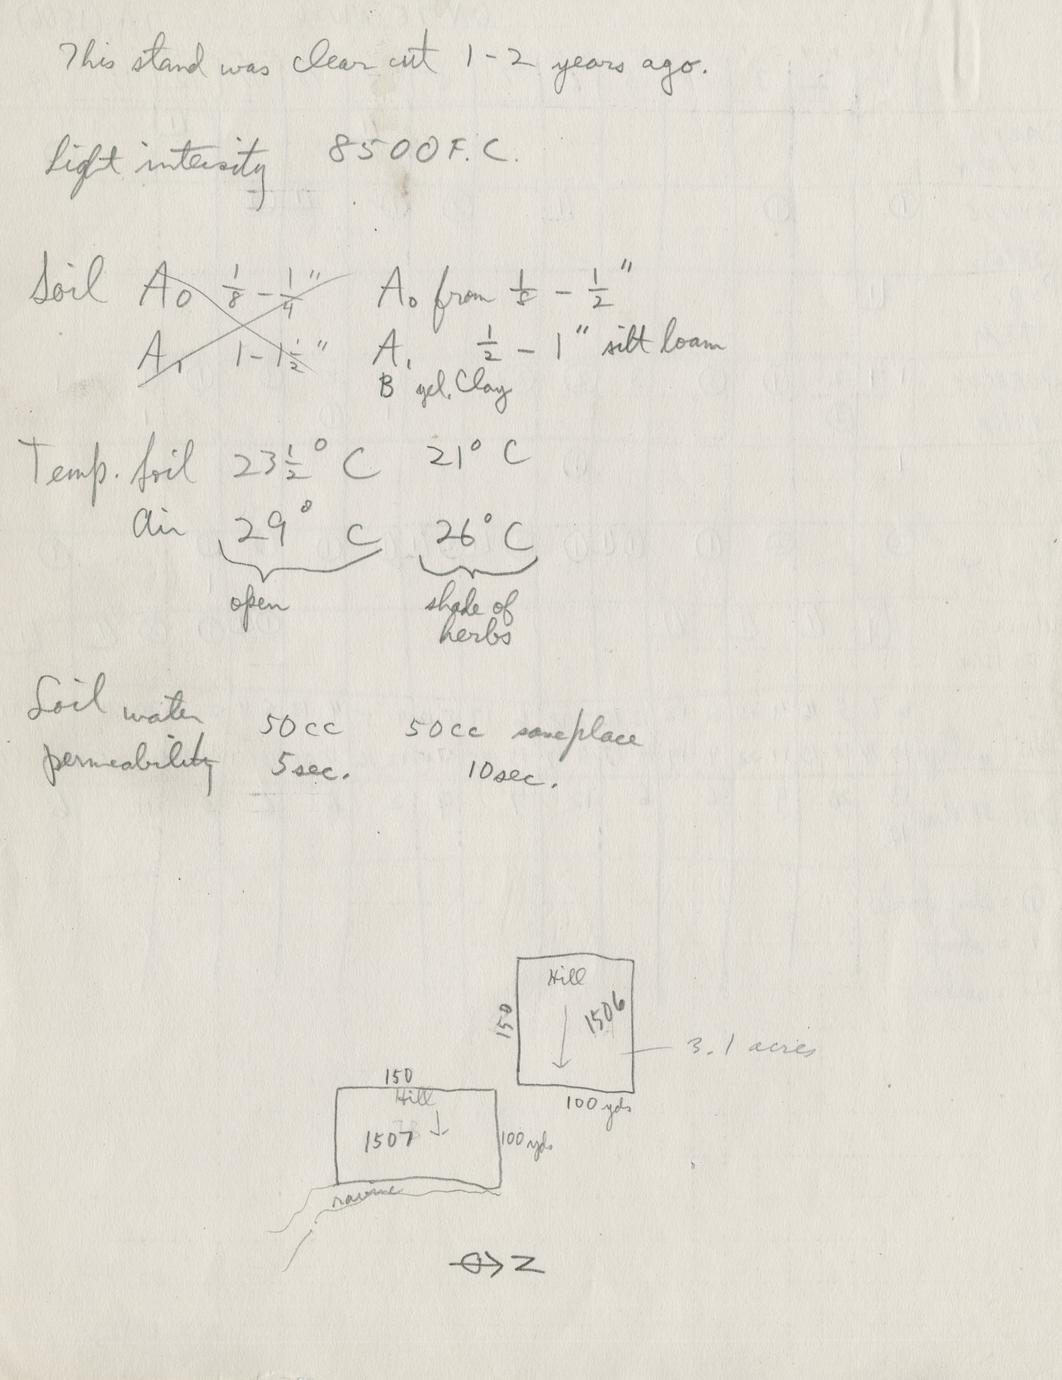 This stand was clear cut 1-2 years ago.
Light intensity 8500 F.C.
Soil A0 1/8 - 1/4" A0 from 1/8 - 1/2"
A1 1 - 1 1/2" A1 1/2 - 1" silt loam
B yel. Clay
Temp. Soil 23 1/2° C 21° C
Air 29° C 26° C
open shade of
herbs
Soil water
permeability
50cc 50cc same place
5 sec. 10 sec.
Hill
150 1506
3.1 acres
100 yds
150
Hill
1507
100 yds
ravine
N